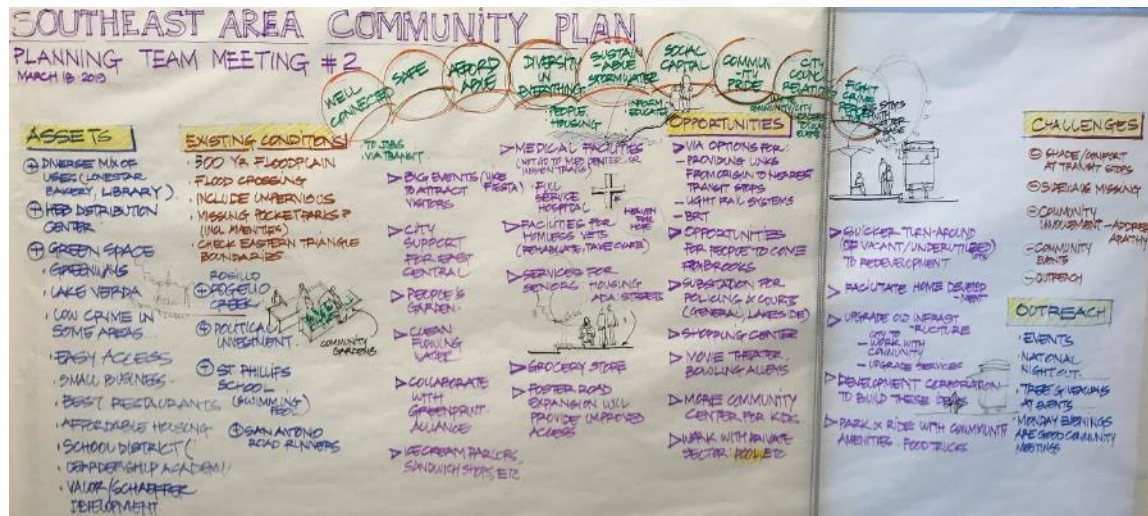 SOUTHEAST AREA COMMUNITY PLAN
PLANNING TEAM MEETING #2
MARCH 18 2019
WELL CONNECTED
SAFE
AFFORD ABLE
DIVERSITY IN EVERYTHING
SUSTAIN -ABLE STORMWATER
SOCIAL CAPITAL
COMMUN -ITY PRIDE
CITY COUNCIL RELATIONS
FIGHT CRIME
· TO JOBS
· VIA TRANSIT
· PEOPLE,
HOUSING
· INFORM
EDUCATE
ASSETS
+ DIVERSE MIX OF
USES (LONESTAR
BAKERY, LIBRARY)
+ HEB DISTRIBUTION
CENTER
+ GREEN SPACE
· GREENWAYS
· LAKE VERDA
· LOW CRIME IN
SOME AREAS
· EASY ACCESS
· SMALL BUSINESS
· BEST RESTAURANTS
· AFFORDABLE HOUSING
· SCHOOL DISTRICT (
LEADERSHIP ACADEMY)
· VALOR/SCHAEFFER
DEVELOPMENT
EXISTING CONDITIONS
· 500 YR FLOODPLAIN
· FLOOD CROSSING
· INCLUDE IMPERVIOUS
· MISSING POCKET PARKS?
(INCL AMENITIES)
· CHECK EASTERN TRIANGLE
BOUNDARIES
ROSILLO
+ ROGELIO
CREEK
+ POLITICAL
INVESTMENT
+ ST PHILLIPS
SCHOOL
(SWIMMING
POOL)
+ SAN ANTONIO
ROAD RUNNERS
COMMUNITY
GARDENS
> BIG EVENTS (LIKE
TO ATTRACT FIESTA)
VISITORS
> CITY
SUPPORT
FOR EAST
CENTRAL
> PEOPLE'S
GARDEN
> CLEAN
FLOWING
WATER
> COLLABORATE
WITH
GREENPRINT
ALLIANCE
> ICE CREAM PARLORS,
SANDWICH SHOPS, ETC
> MEDICAL FACILITIES
(NOT GO TO MED CENTER OR
MISSION TRAILS)
· FULL
SERVICE
HOSPITAL
> FACILITIES FOR
HOMELESS VETS
(REHABILITATE, TAKE CARE)
HEAVEN
FOR
HOPE
> SERVICES FOR
SENIORS · HOUSING
ADA · STREETS
> GROCERY STORE
> FOSTER ROAD
EXPANSION WILL
PROVIDE IMPROVED
ACCESS
OPPORTUNITIES
> VIA OPTIONS FOR:
- PROVIDING LINKS
FROM ORIGIN TO NEAREST
TRANSIT STOPS
- LIGHT RAIL SYSTEMS
- BRT
> OPPORTUNITIES
FOR PEOPLE TO COME
TO BROOKS
> SUBSTATION FOR
POLICING & COURT
(GENERAL, LAKESIDE)
> SHOPPING CENTER
> MOVIE THEATER
BOWLING ALLEYS
> MORE COMMUNITY
CENTER FOR KIDS
> WORK WITH PRIVATE
SECTOR: POOL, ETC
> QUICKER TURN-AROUND
OF VACANT/UNDERUTILIZED
TO REDEVELOPMENT
> FACILITATE HOME DEVELOP
-MENT
> UPGRADE OLD INFRAST
-RUCTURE
CITY TO
- WORK WITH
COMMUNITY
- UPGRADE SERVICES
> DEVELOPMENT CORPORATION
TO BUILD THESE IDEAS
> PARK & RIDE WITH COMMUNITY
AMENITIES - FOOD TRUCKS
CHALLENGES
- SHADE/COMFORT
AT TRANSIT STOPS
- SIDEWALKS MISSING
- COMMUNITY
INVOLVEMENT - ADDRESS
- COMMUNITY
EVENTS
- OUTREACH
OUTREACH
· EVENTS
· NATIONAL
NIGHT OUT
· TREE GIVEAWAYS
AT EVENTS
· MONDAY EVENINGS
ARE GOOD COMMUNITY
MEETINGS